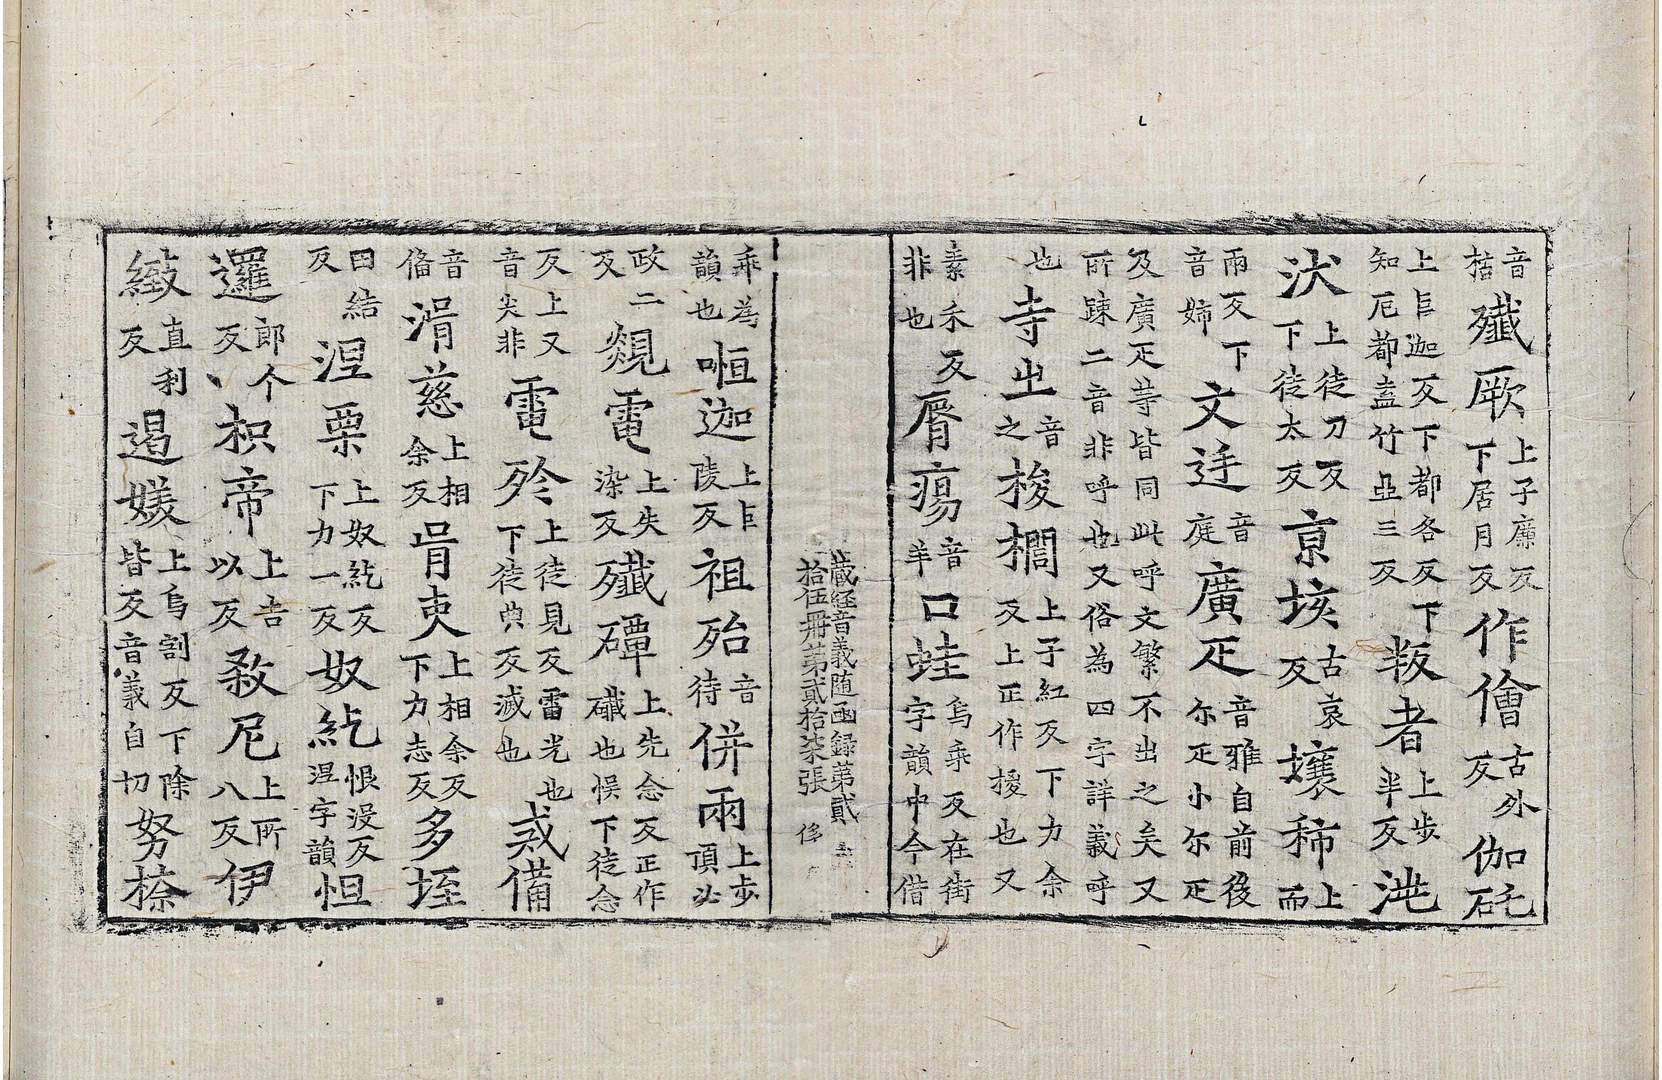 音梏殲厥上子廉反下居月反作儈古外反伽硳
上巨迦反下都各反下知厄都盍竹亞三反叛者上步半反沌
汱上徒刀反下徒太反京垓古哀反壤秭上而
兩反下音姉文迋音庭廣疋音雅自前後尓疋小尓疋
及廣疋䓁皆同此呼文繁不出之矣又所踈二音非呼也又俗為四字詳義呼
也寺出音之梭櫚上子紅反下力余反上正作椶也又
素禾反非也脣瘍音羊口蛙烏乖反在街字韻中今借
藏経音義随函録苐貳拾伍冊苐貳拾柒張
乖為韻也啒迦上巨陵反祖殆音待併兩上步頂必
政二反覢電上失染反殲磹上先念反正作䃸也悮下徒念
反上又音尖非電殄上徒見反雷光也下徒典反滅也惑備
音俻湑慈上相余反胥叓上相余反下力志反多垤
田結反涅栗上奴紇反下力一反奴紇恨没反涅字韻怛
邏郎个反枳帝上吉以反敹尼上所八反伊
緻直利反遏㜸上烏割反下除皆反音義自切努㮈